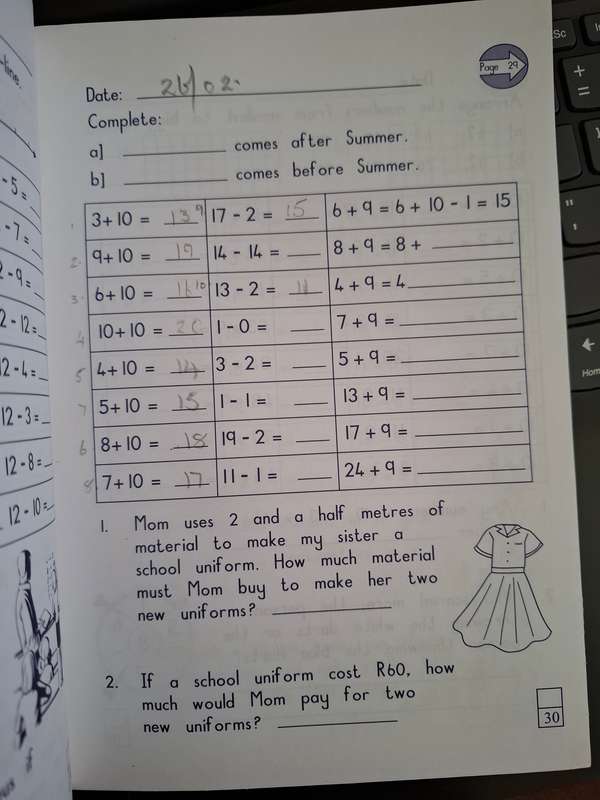 -line.
Page 29
Date: 26/02.
Complete:
a] ____ comes after Summer.
b] ____ comes before Summer.
3+10 = 13 9 17 - 2 = 15 6 + 9 = 6 + 10 - 1 = 15
2. 9+10 = 19 14 - 14 = ____ 8 + 9 = 8 + ____
3. 6+10 = 16 10 13 - 2 = 11 4 + 9 = 4 ____
4 10+10 = 20 1 - 0 = ____ 7 + 9 = ____
5 4+10 = 14 3 - 2 = ____ 5 + 9 = ____
7 5+10 = 15 1 - 1 = ____ 13 + 9 = ____
6 8+10 = 18 19 - 2 = ____ 17 + 9 = ____
8 7+10 = 17 11 - 1 = ____ 24 + 9 = ____
- 5 =
- 7 =
2 - 9 =
2 - 12 =
12 - 4 =
12 - 3 =
12 - 8 =
12 - 10 =
1. Mom uses 2 and a half metres of
material to make my sister a
school uniform. How much material
must Mom buy to make her two
new uniforms? ____
2. If a school uniform cost R60, how
much would Mom pay for two
new uniforms? ____
30
of
Sc
+
=
"
'
Hom